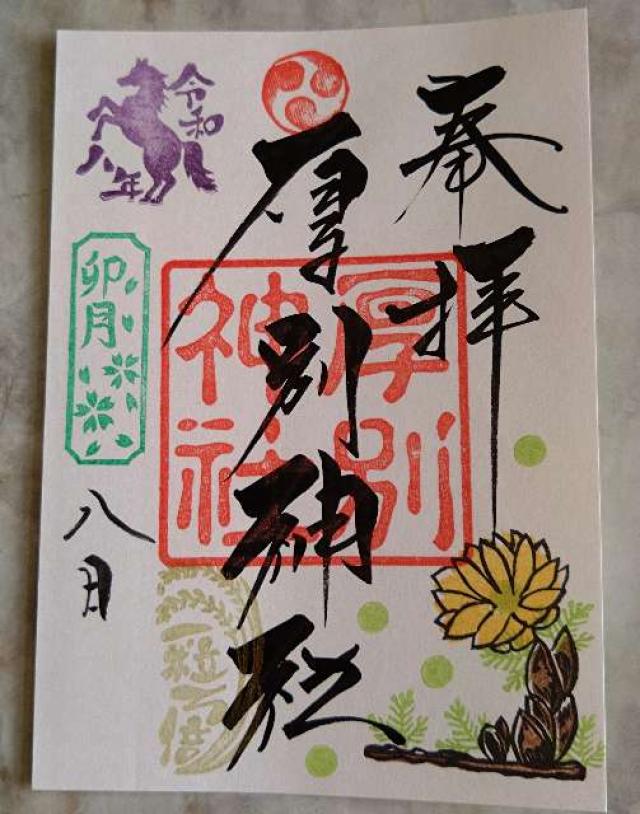 奉拝
厚別神社
厚別
神社
令和
八年
卯月
八日
一粒万倍